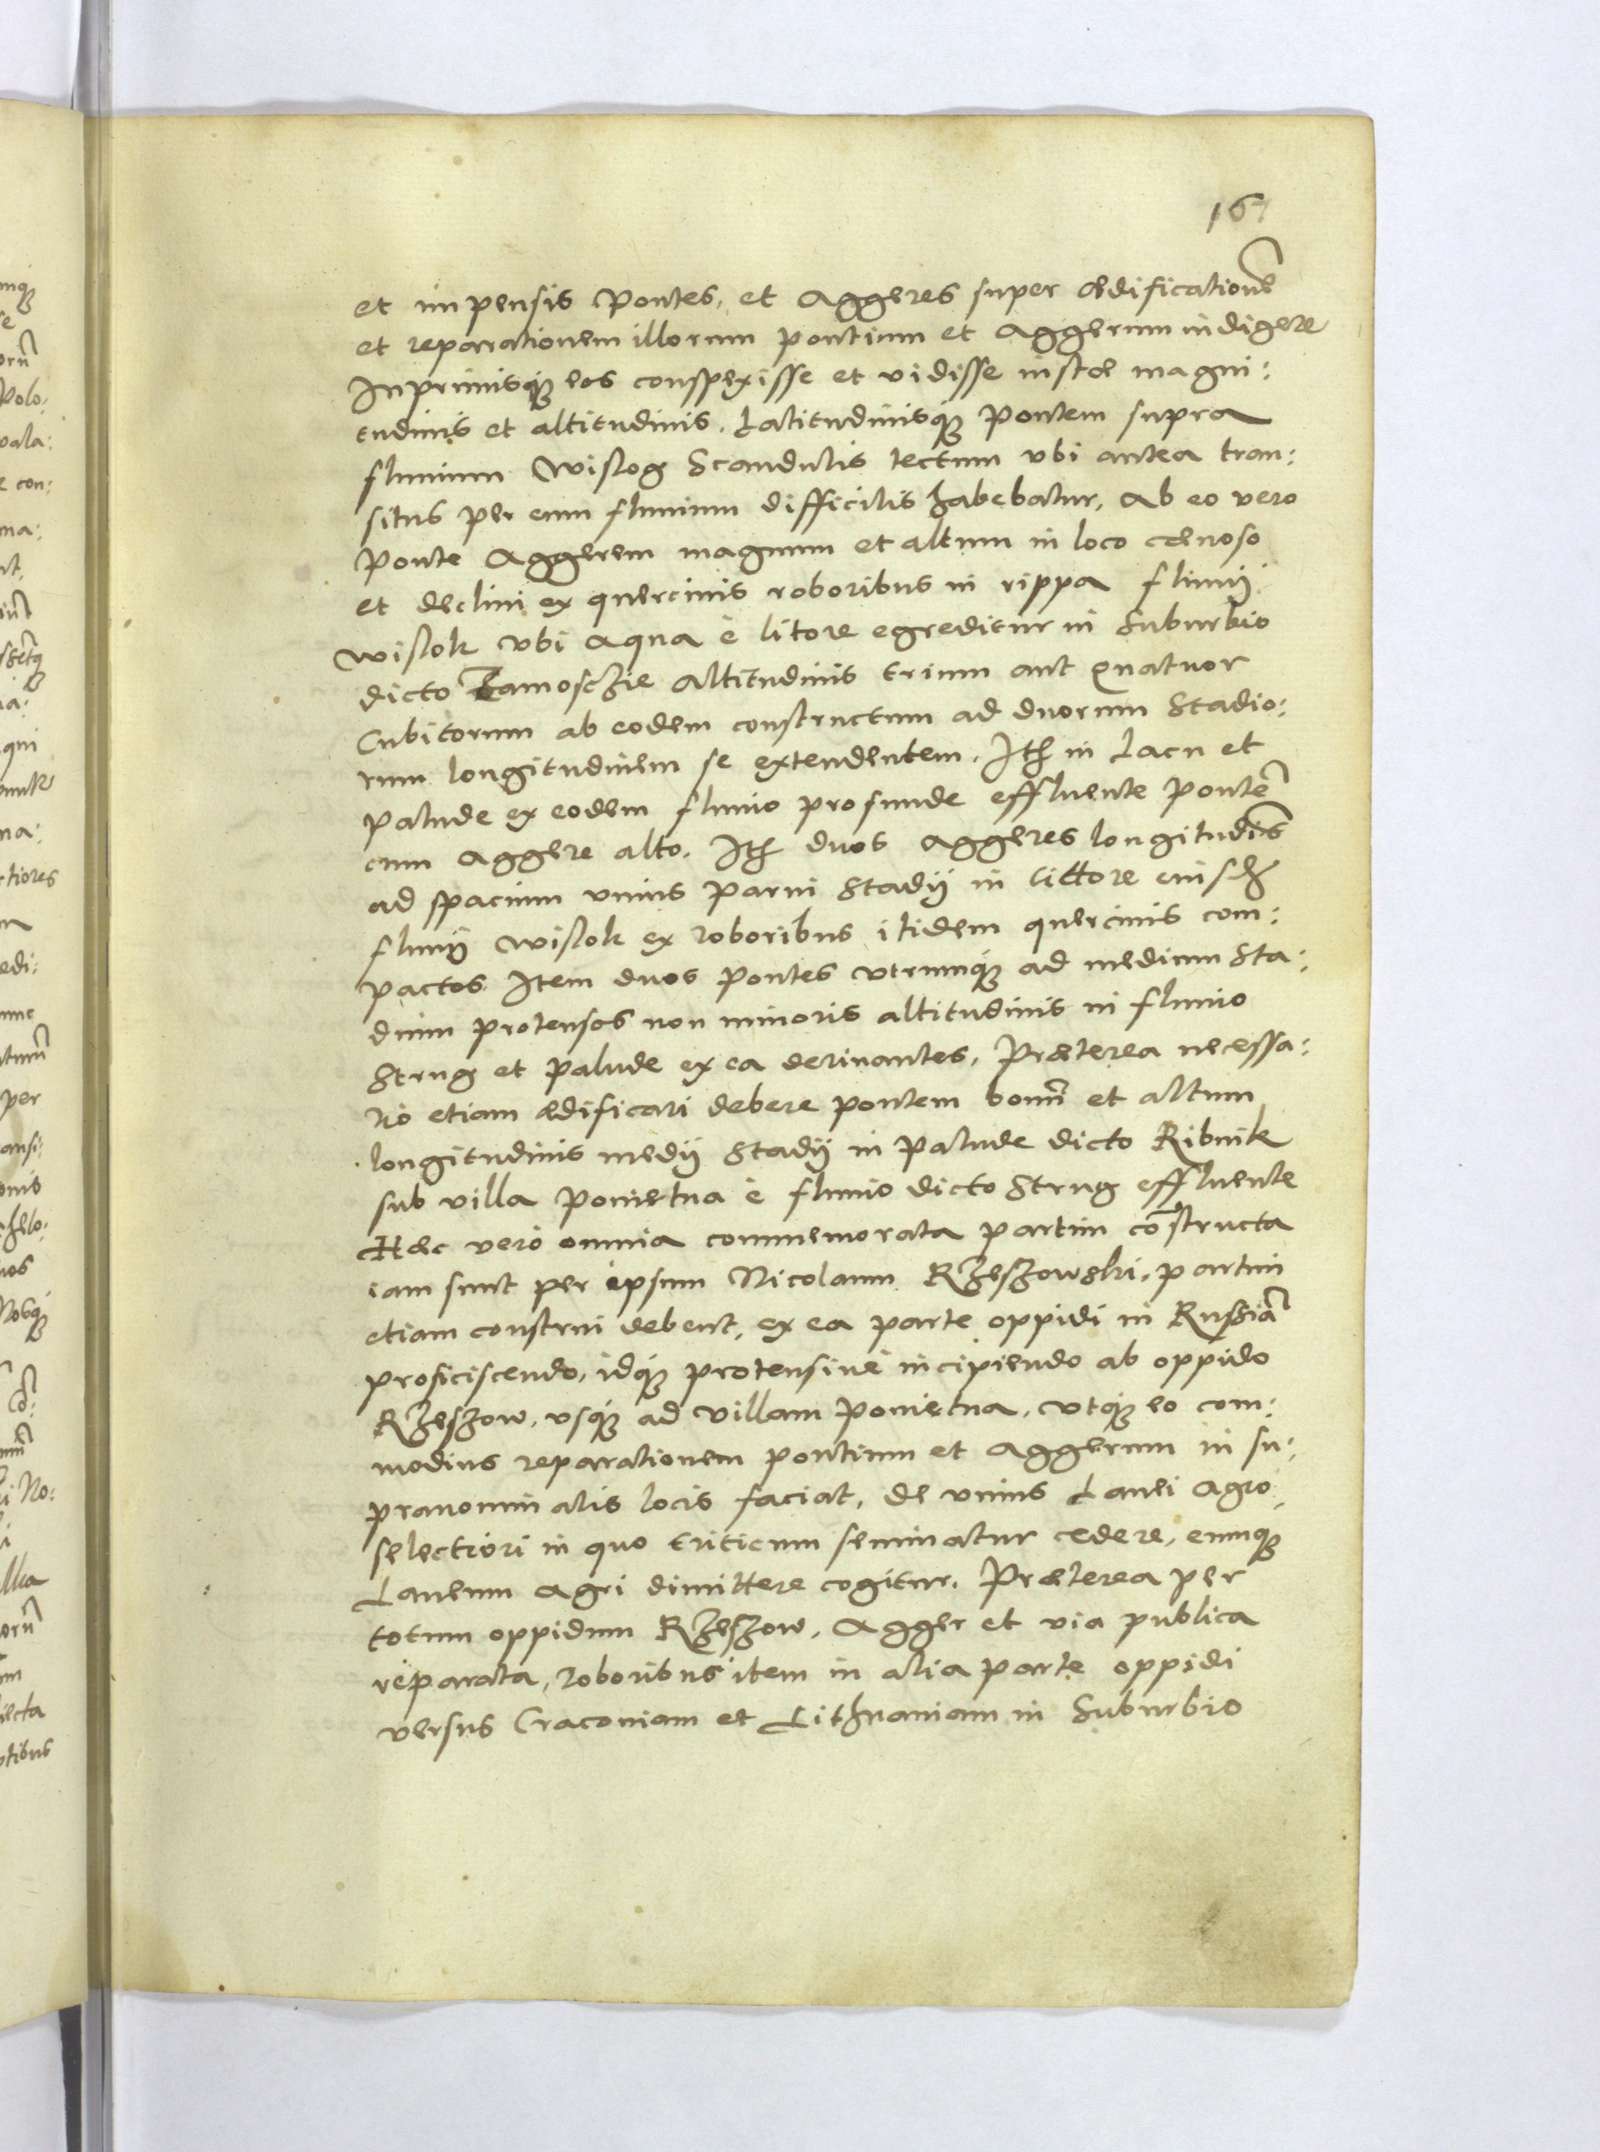 167
et impensis Pontes, et Aggeres super ædificationē
et reparationem illorum pontium et Aggerum indigere
Inprimisq́ue eos conspexisse et vidisse instæ magni:
tudinis et altitudinis, Latitudinisq́ue Pontem supra
fluuium Wislog Scandulis tectum vbi antea tran:
situs per eum fluuium difficilis habebatur, Ab eo vero
Ponte Aggerem magnum et altum in loco cænoso
et declini ex quercinis roboribus in rippa fluuij
Wislok vbi Aqua è litore egreditur in Suburbio
dicto Zamosczie Altitudinis trium aut Quatuor
Cubitorum ab eodem constructum ad duorum Stadio:
rum longitudinem se extendentem. Itē in Lacu et
Palude ex eodem fluuio profunde effluente Pontē
cum Aggere alto. Itē duos Aggeres longitudīs
ad spacium vnius parui Stadij in littore eiusdē
fluuij Wislok ex roboribus itidem quercinis com:
pactos Item duos Pontes vtrumq́ue ad medium Sta:
dium protensos non minoris altitudinis in fluuio
Strug et Palude ex ea deriuantes, Præterea necessa:
riò etiam ædificari debere pontem bonū et altum
longitudinis medij Stadij in Palude dicto Ribnik
sub villa Pouietna è fluuio dicto Strug effluente
Hæc vero omnia commemorata partim cōstructa
iam sunt per ipsum Nicolaum Rzeszowski, partim
etiam construi debent, ex ea parte oppidi in Russiā
proficiscendo, idq́ue protensiue incipiendo ab oppido
Rzeszow, vsq́ue ad villam Pouietna, vtq́ue eo com:
modius reparationem pontium et Aggerum in su:
pranominatis locis faciat, de vnius Lanei Agro
selectiori in quo triticum seminatur cedere, eumq́ue
Laneum Agri dimittere cogitur. Præterea per
totum oppidum Rzeszow, Agger et via publica
reparata, roboribus item in alia parte oppidi
versus Cracouiam et Lithuaniam in Suburbio